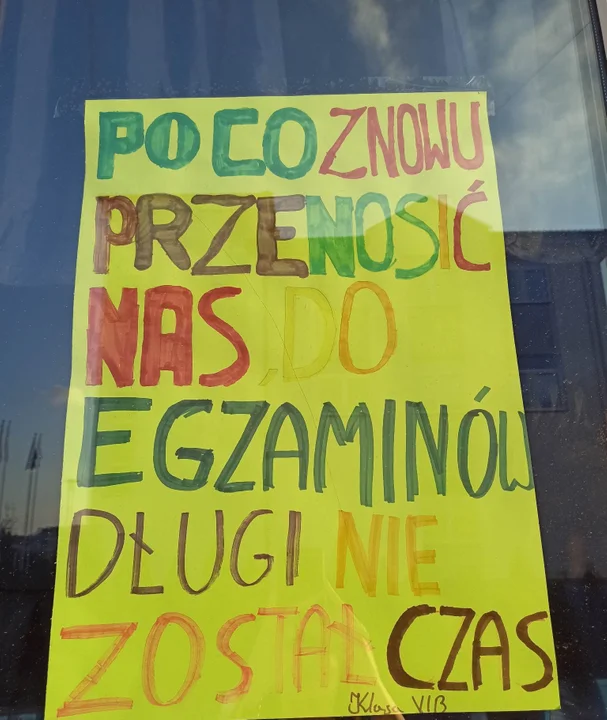 PO CO ZNOWU
PRZENOSIĆ
NAS, DO
EGZAMINÓW
DŁUGI NIE
ZOSTAŁ CZAS
Klasa VIB